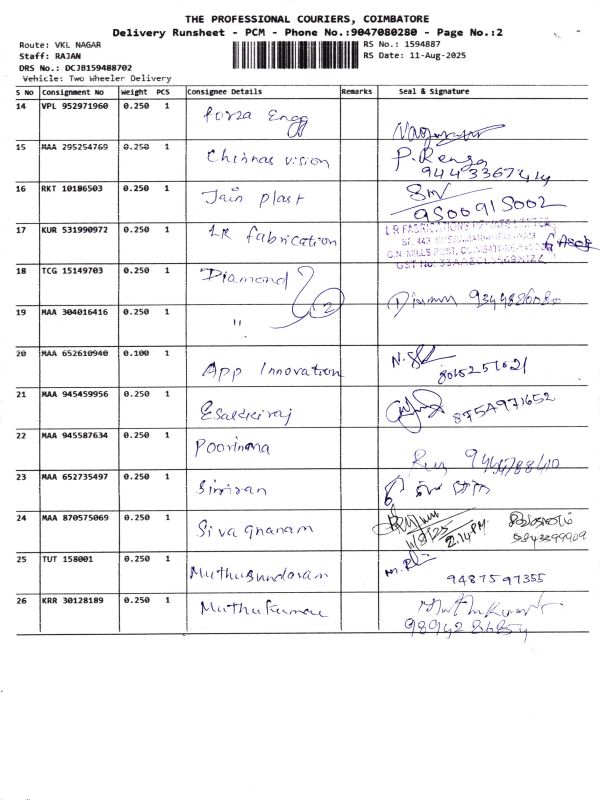 THE PROFESSIONAL COURIERS, COIMBATORE
Delivery Runsheet - PCM - Phone No.:9047080280 - Page No.:2
Route: VKL NAGAR
RS No.: 1594887
Staff: RAJAN
RS Date: 11-Aug-2025
DRS No.: DCJB159488702
Vehicle: Two Wheeler Delivery
S No Consignment No Weight PCS Consignee Details Remarks Seal & Signature
14 VPL 952971960 0.250 1 forza Engg
15 MAA 295254769 0.250 1 Chinnas vision P. Renga
9443367414
16 RKT 10186503 0.250 1 Jain plast
9500915002
17 KUR 531990972 0.250 1 LR fabrication
18 TCG 15149703 0.250 1 Diamond 2
19 MAA 304016416 0.250 1 "
20 MAA 652610940 0.100 1 App Innovation
8015251621
21 MAA 945459956 0.250 1 Esakkiraj 8754971652
22 MAA 945587634 0.250 1 Poorinma
23 MAA 652735497 0.250 1 Simran
24 MAA 870575069 0.250 1 Sivagnanam
2.14 PM
25 TUT 158001 0.250 1 Muthusundaram
9487597355
26 KRR 30128189 0.250 1 Muthukumar